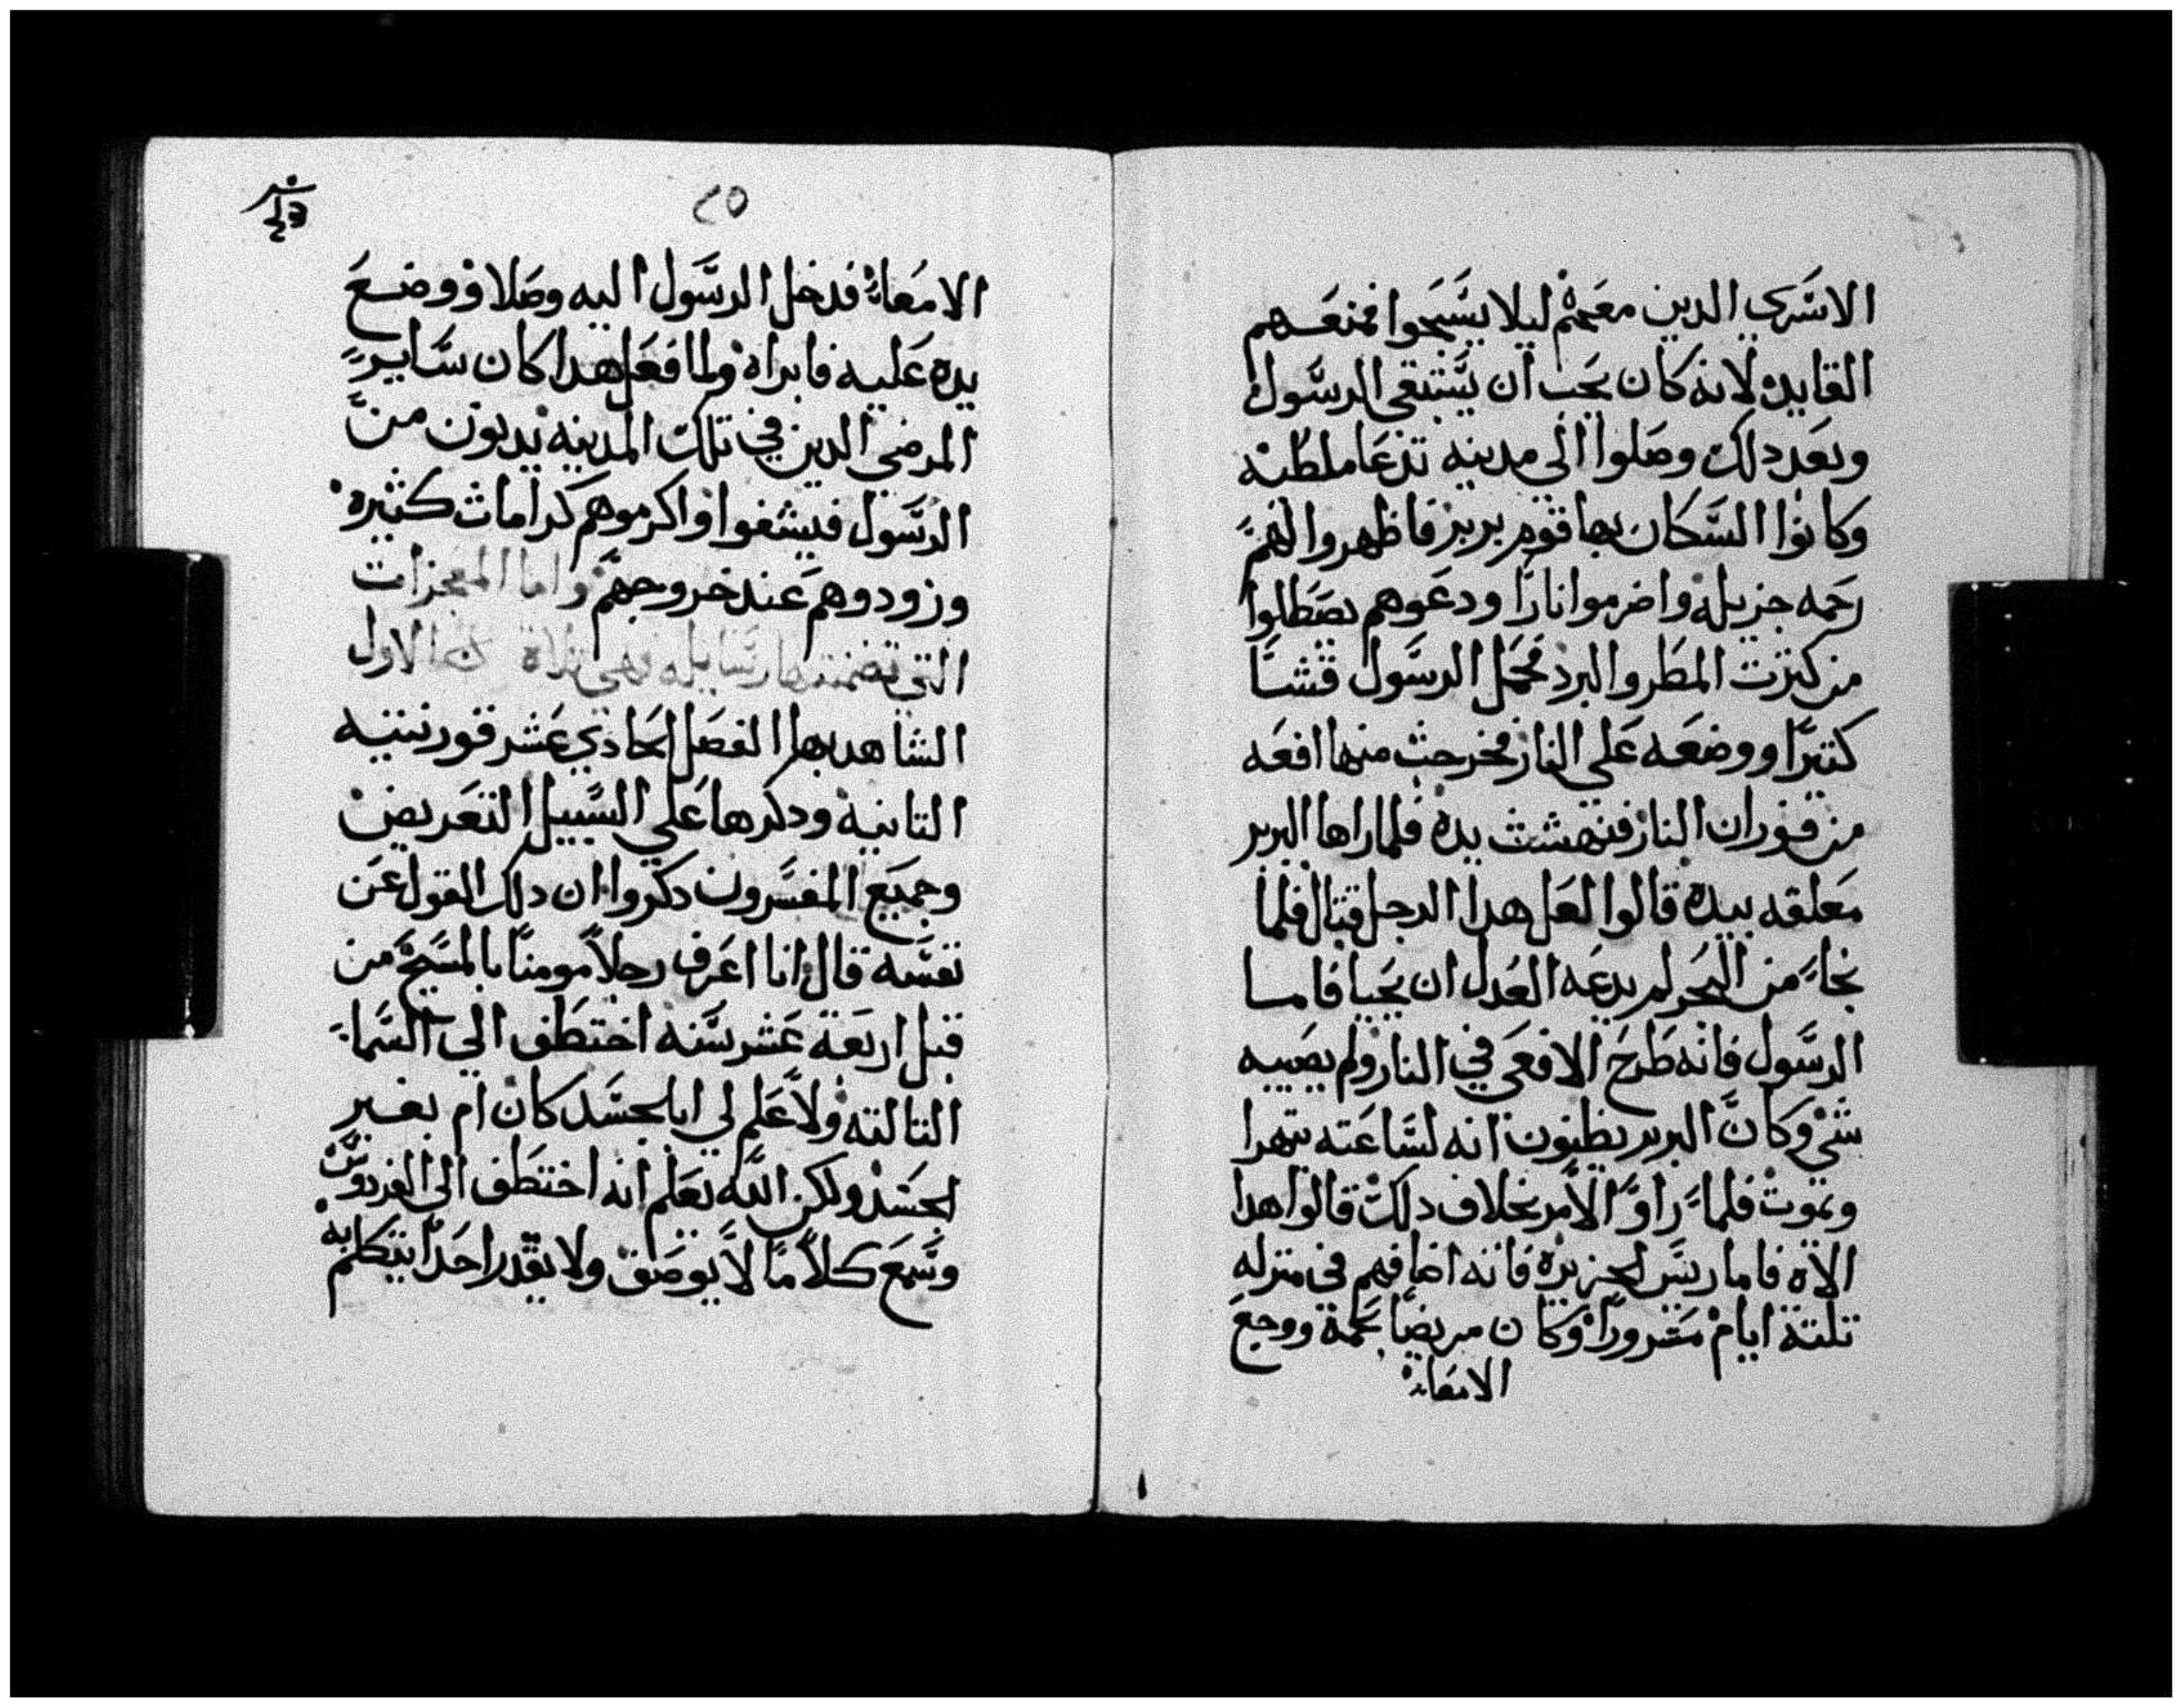 الاسَري الدين معَهم ليلا يسَبحوا فمنعَهم
القايد لانه كان يحب ان يسَتبقى الرسَول
وبعَد دلك وصَلوا الى مدينه تدعَا ملطيه
وكانوا السَكان بها قوم بربر فاظهروا لهم
رحَمه جزيله واضرموا نارًا ودعَوهم يصَطلوا
من كترت المطر والبرد فحَمل الرسَول قشًا
كتيرًا ووضعَه عَلى النار فخرجت منها افعَه
من فوران النار فنهشت يده فلما راها البربر
معَلقه بيده قالوا لعَل هدا الرجل قتال فلما
نجاَ من البحر لم يدعَه العَدل ان يحَيا فاما
الرسَول فانه طرحَ الافعَى في النار ولم يصَيبه
شي وكان البربر يظنون انه لسَاعَته يتهرا
ويموت فلما راَوا الاَمر بخلاف دلك قالوا هدا
الاه فاما ريسَ الجزيره فانه اضافهم في منزله
تلتة ايام مسَرورًا وكان مريضًا بحَمة ووجعَ
الامعَاء
٢٥
الامعَاء فدخل الرسَول اليه وصَلا ووضعَ
يده عَليه فابراه ولما فعَل هدا كان سَاير
المرضى الدين في تلك المدينه يدنون من
الرسَول فيشفوا واكرموهم كرامات كثيره
وزودوهم عَند خروجهم واما المعَجزات
التي تضمنتها رسَايله فهي تلاة الاول
الشاهد بها الفصَل الحَادي عَشر قورنتيه
التانيه ودكرها عَلي السَبيل التعَريض
وجميَع المفسَرون دكروا ان دلك القول عَن
نفسَه قال انا اعَرف رجلاً مومناً بالمسَيح من
قبل اربعَة عَشر سَنه اختطَف الي السَما
التالته ولاَ عَلم لي ابالجسَد كان ام بغير
الجسَد ولكن الله يعَلم انه اختطَف الى الفردوسَ
وسَمعَ كلاَمًا لاَ يوصَف ولا يقدر احَداً يتكلم به